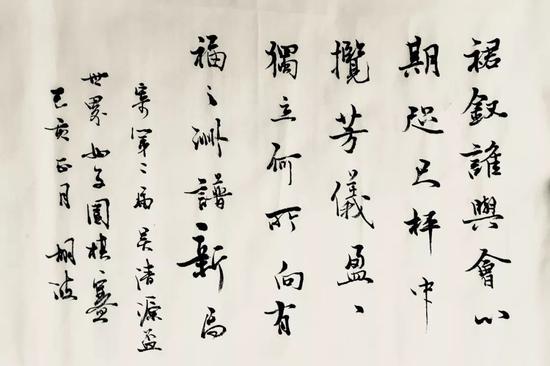 裙釵誰與會心
期咫尺枰中
攬芳儀盈々
獨立何所向有
福之洲譜新局
寄第二屆吳清源盃
世界女子圍棋賽
己亥正月 胡波